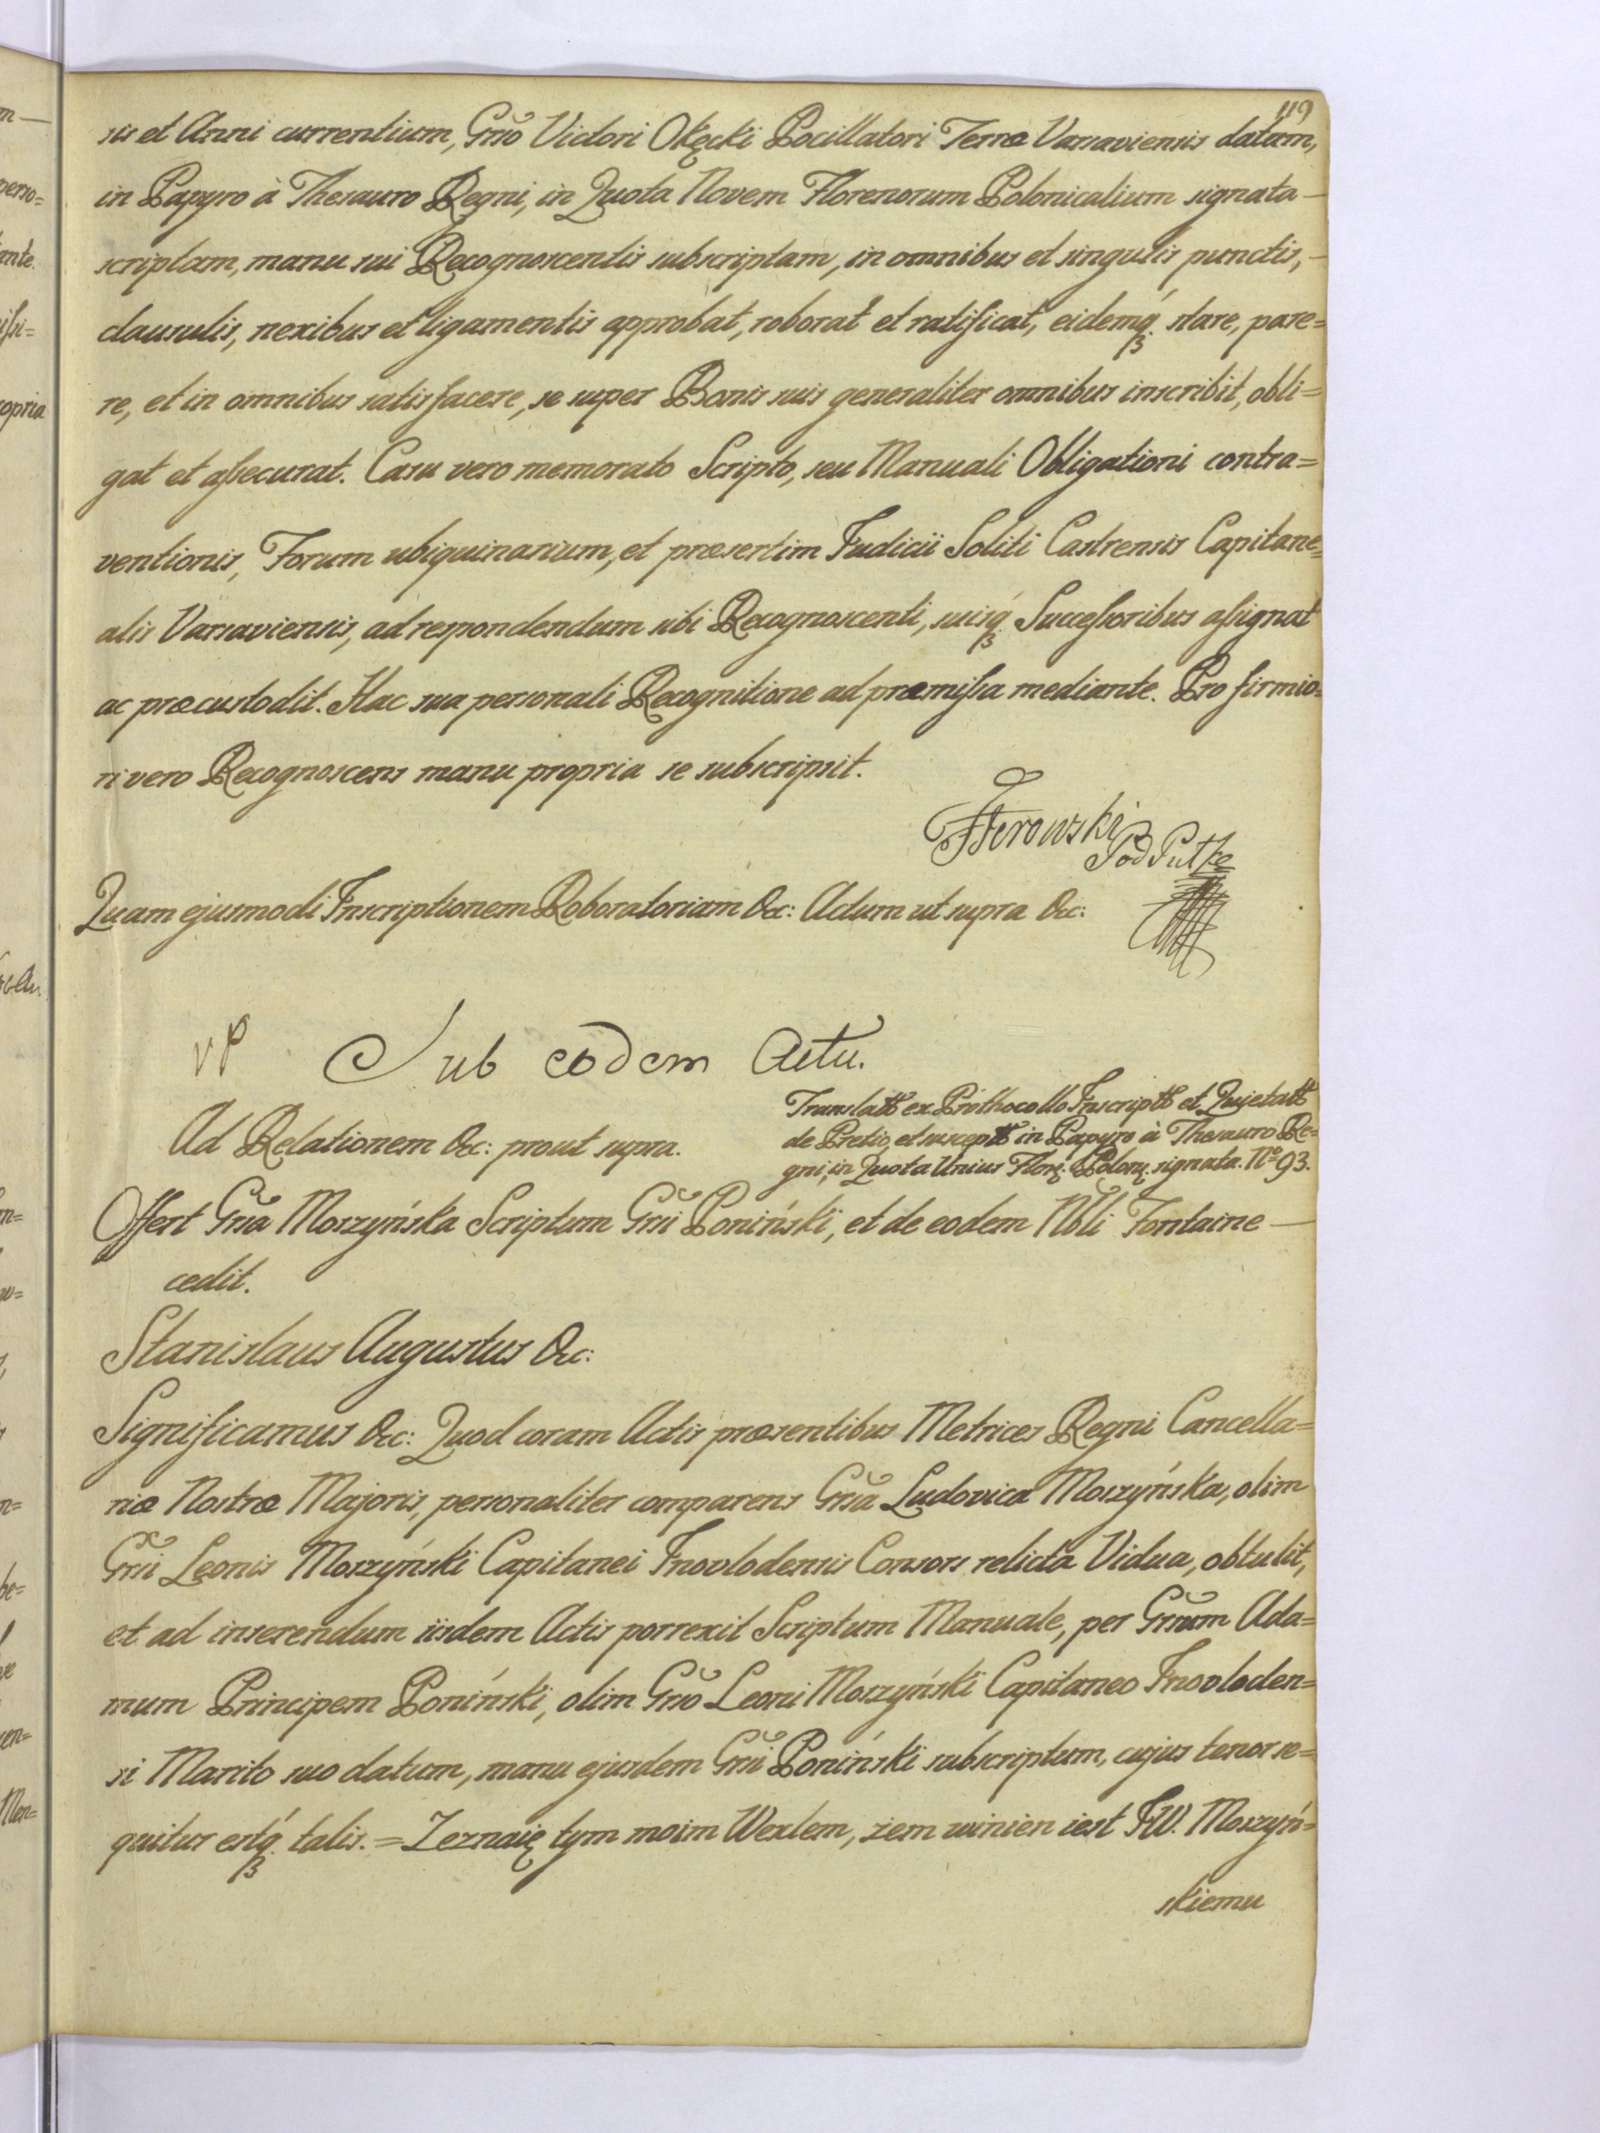 119
sis et Anni currentium, Grso Victori Okęcki Pocillatori Terræ Varsaviensis datam,
in Papyro à Thesauro Regni, in Quota Novem Florenorum Polonicalium signata
scriptam, manu sui Recognoscentis subscriptam, in omnibus et singulis punctis,
clausulis, nexibus et ligamentis approbat, roborat et ratificat, eidemq́ꝫ stare, pare=
re, et in omnibus satisfacere, se super Bonis suis generaliter omnibus inscribit, obli=
gat et assecurat. Casu vero memorato Scripto, seu Manuali Obligationi contra=
ventionis, Forum ubiquinarium, et præsertim Judicii Soliti Castrensis Capitane=
alis Varsaviensis, ad respondendum sibi Recognoscenti, suisq́ꝫ Successoribus assignat
ac præcustodit. Hac sua personali Recognitione ad præmissa mediante. Pro firmio=
ri vero Recognoscens manu propria se subscripsit.
Quam ejusmodi Inscriptionem Roboratoriam &c: Actum ut supra &c:
vP Sub eodem Actu.
Ad Relationem &c: prout supra.
Translatt ex Prothocollo Inscriptt et Quietatt
de Pretio, et suscept in Papyro à Thesauro Re=
gni, in Quota Unius Florꝫ Polonꝫ signata. No 93.
Offert Grsa Moszyńska Scriptum Grsi Poniński, et de eodem Nbli Fontaine
cedit.
Stanislaus Augustus &c:
Significamus &c: Quod coram Actis præsentibus Metrices Regni Cancella=
riæ Nostræ Majoris, personaliter comparens Grsa Ludovica Moszyńska, olim
Grsi Leonis Moszyński Capitanei Inovlodensis Consors relicta Vidua, obtulit,
et ad inserendum iisdem Actis porrexit Scriptum Manuale, per Grsum Ada=
mum Principem Poniński, olim Grso Leoni Moszyński Capitaneo Inovloden=
si Marito suo datum, manu ejusdem Grsi Poniński subscriptum, cujus tenor se=
quitur estq́ꝫ talis. = Zeznaię tym moim Wexlem, żem winien iest JW. Moszyń=
skiemu